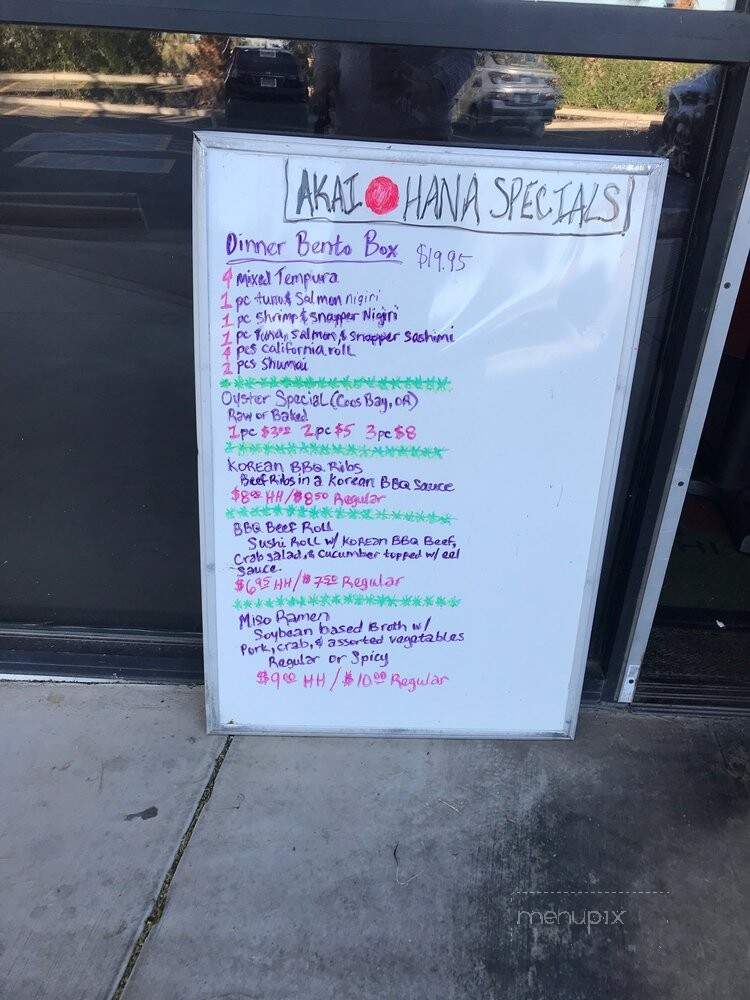 AKAI HANA SPECIALS
Dinner Bento Box $19.95
4 Mixed Tempura
1 pc tuna & Salmon nigiri
1 pc shrimp & snapper Nigiri
1 pc Tuna, salmon, & snapper sashimi
4 pcs California roll
2 pcs Shumai
Oyster Special (Coos Bay, OR)
Raw or Baked
1pc $3.00 2pc $5 3pc $8
Korean BBQ Ribs
Beef Ribs in a Korean BBQ Sauce
$8.00 HH / $8.50 Regular
BBQ Beef Roll
Sushi Roll w/ Korean BBQ Beef,
Crab salad, & cucumber topped w/ eel
sauce.
$6.95 HH / $7.50 Regular
Miso Ramen
Soybean based Broth w/
Pork, crab, & assorted vegatables
Regular or Spicy
$9.00 HH / $10.00 Regular
menupix